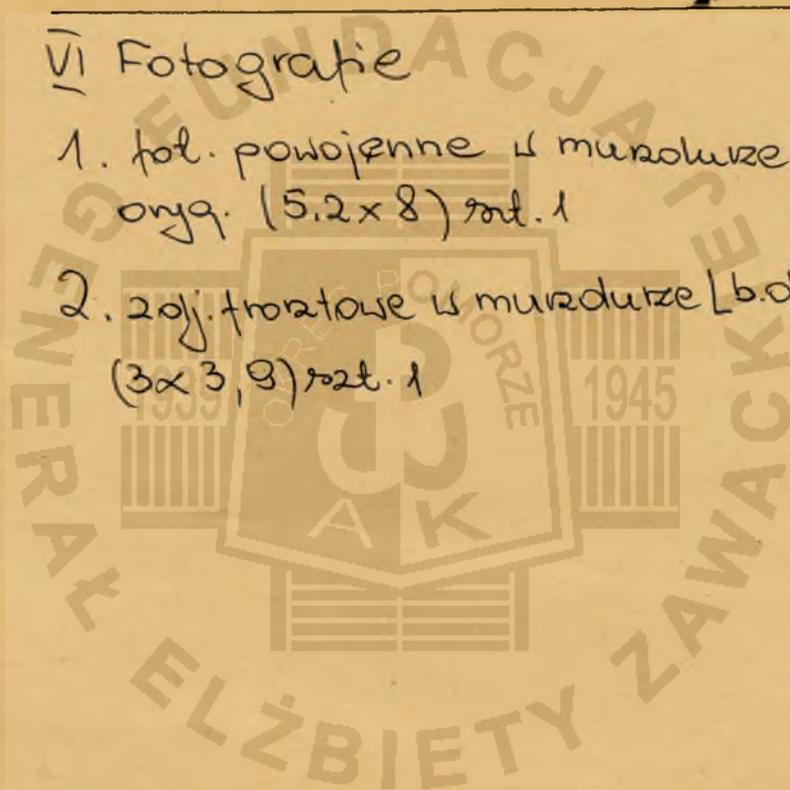 VI Fotografie
1. fot. powojenne w mundurze
oryg. (5,2 x 8) szt. 1
2. zdj. frontowe w mundurze [b.d
(3 x 3,9) szt. 1
FUNDACJA GENERAŁ ELŻBIETY ZAWACKIEJ
OKRĘG POMORZE
1939 1945
AK